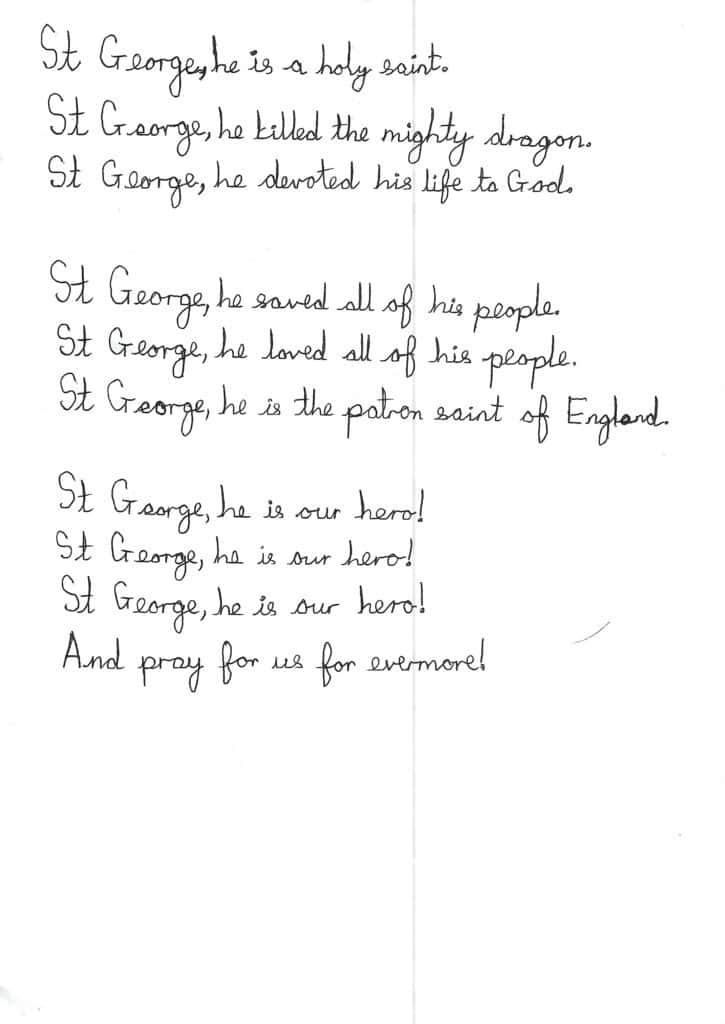 St George, he is a holy saint.
St George, he killed the mighty dragon.
St George, he devoted his life to God.
St George, he saved all of his people.
St George, he loved all of his people.
St George, he is the patron saint of England.
St George, he is our hero!
St George, he is our hero!
St George, he is our hero!
And pray for us for evermore!